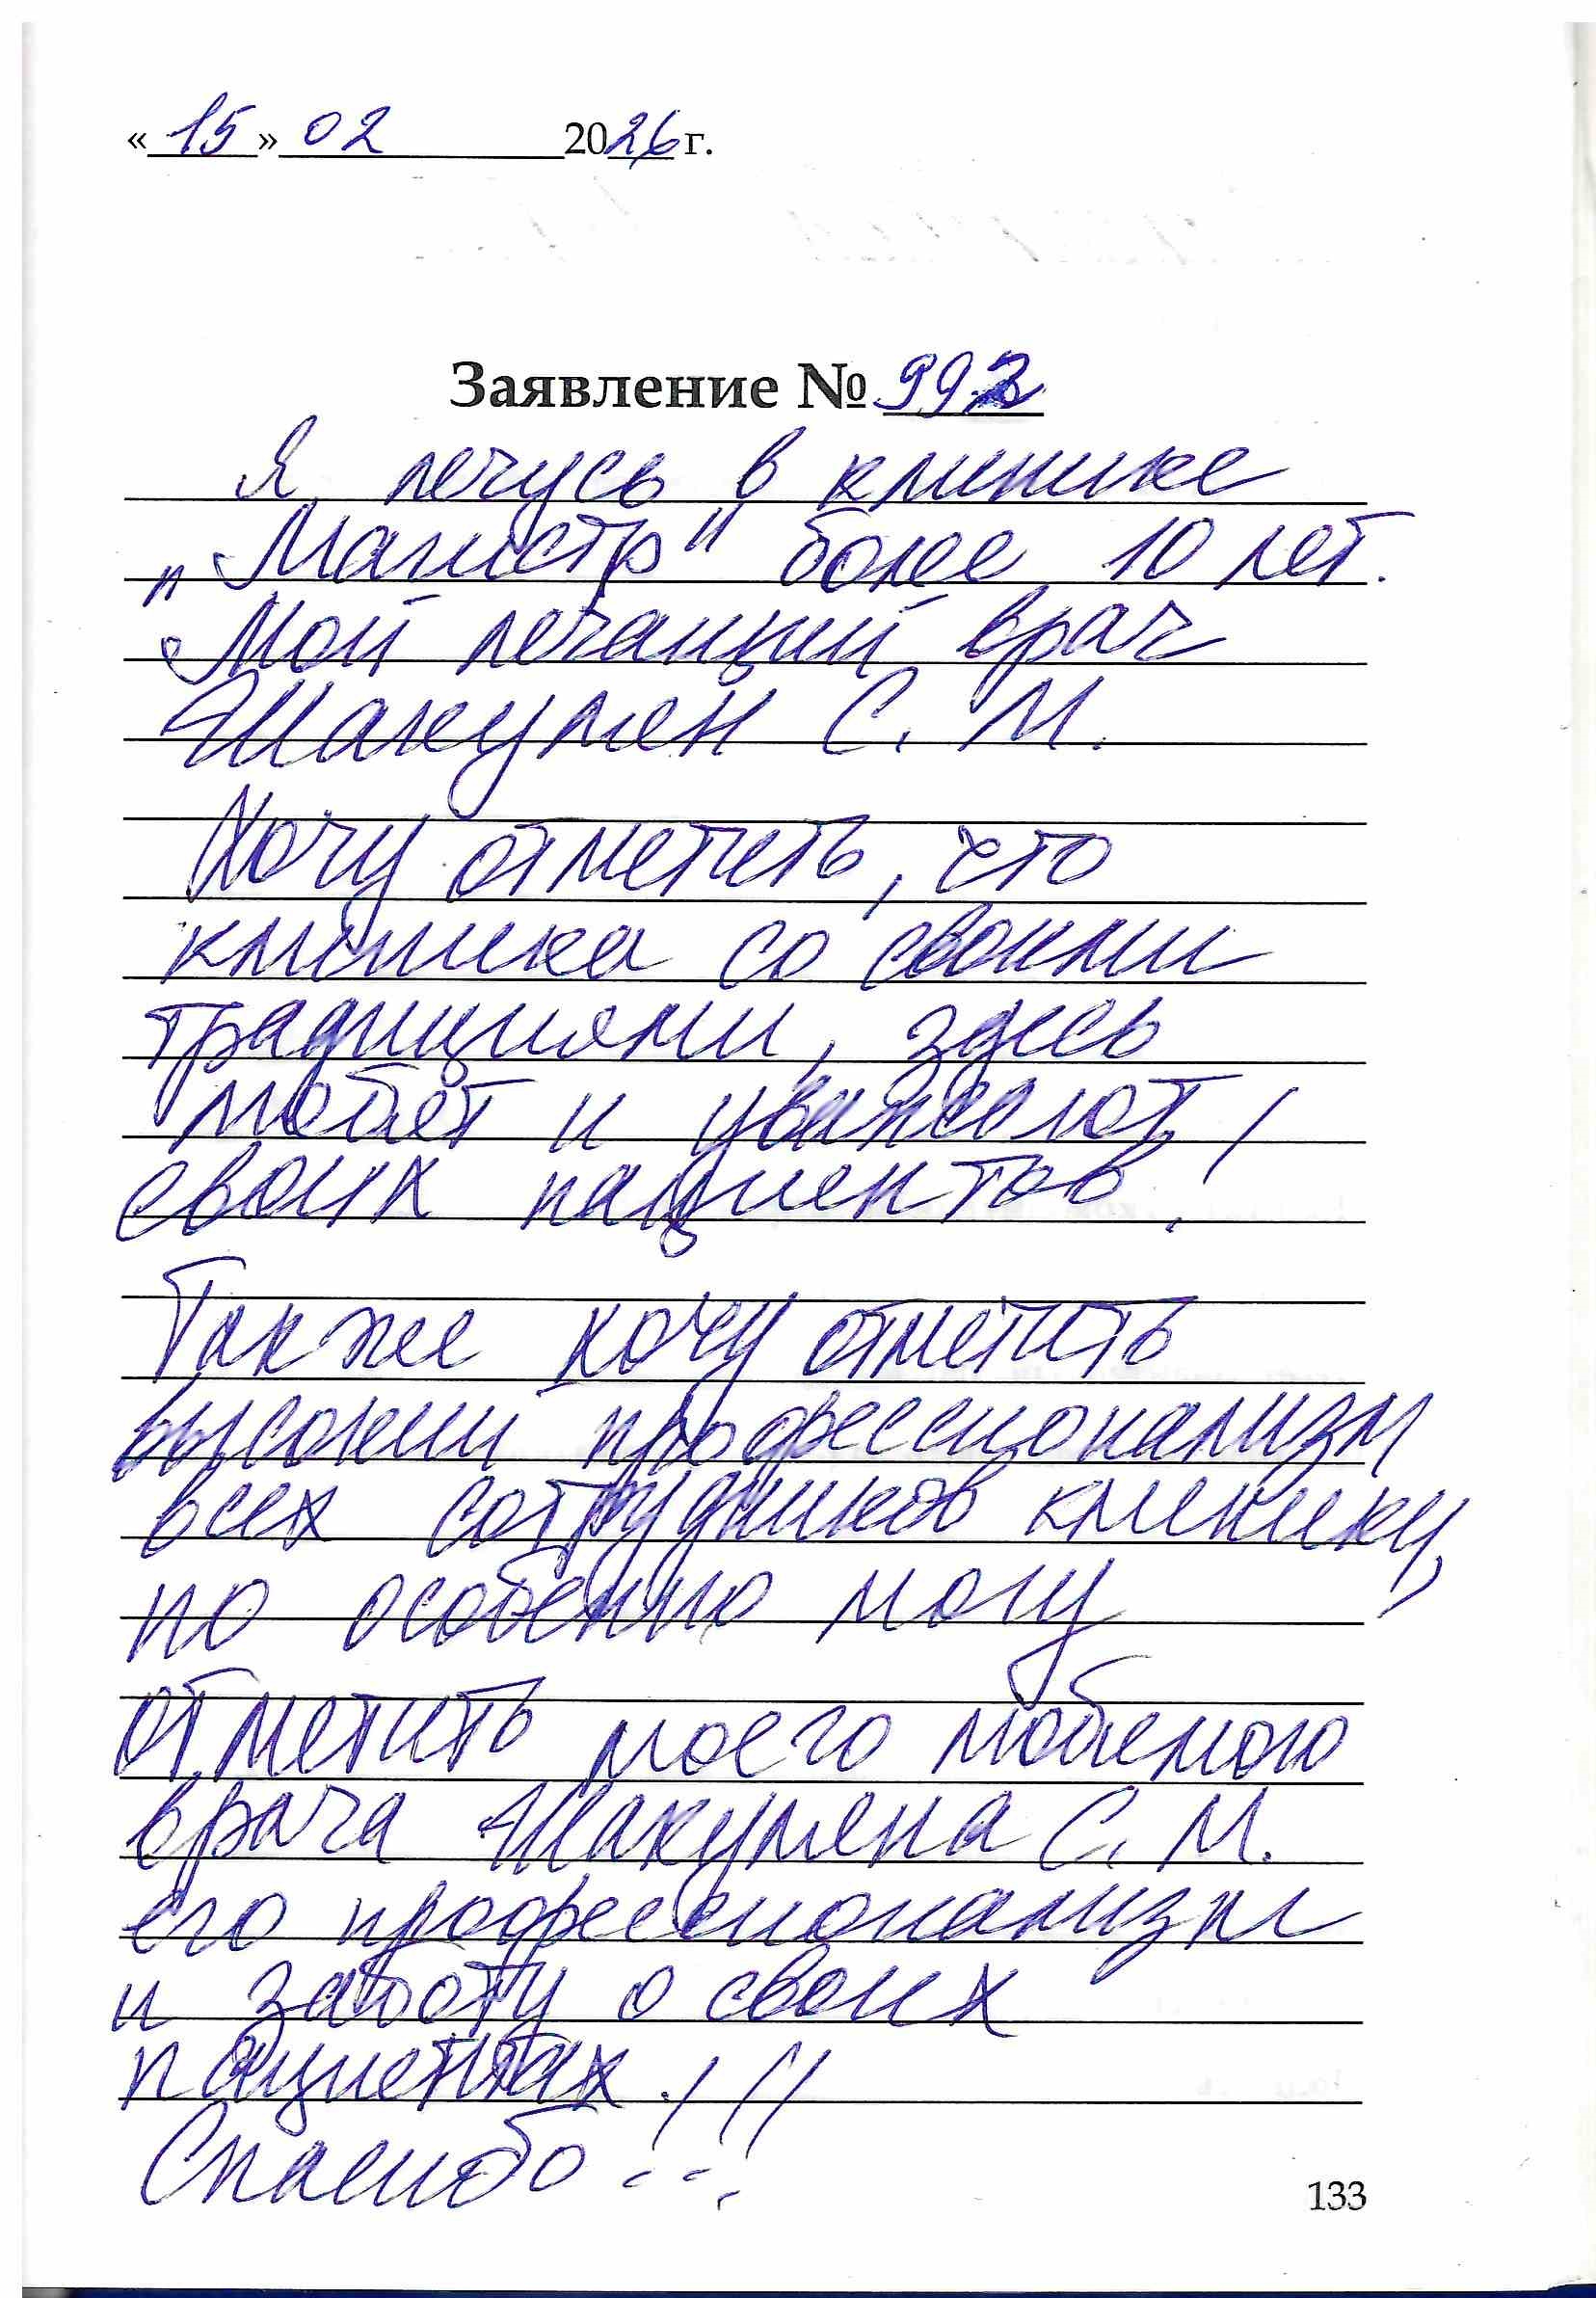 «15» 02 2026 г.
Заявление № 992
Я лечусь в клинике
„Магистр" более 10 лет.
Мой лечащий врач
Шакумен С. М.
Хочу отметить, что
клиника со своими
традициями, здесь
любят и уважают
своих пациентов!
Также хочу отметить
высокий профессионализм
всех сотрудников клиники,
но особенно могу
отметить моего любимого
врача Шакумена С. М.
его профессионализм
и заботу о своих
пациентах!!!
Спасибо!
133